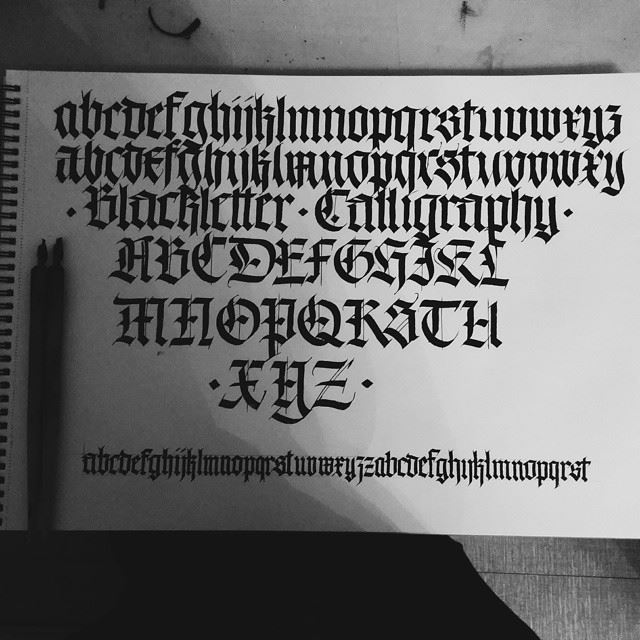 abcdefghijklmnopqrstuvwxyz
abcdefghijklmnopqrstuvvwxy
· Blackletter · Calligraphy ·
ABCDEFGHIJKL
MNOPQRSTU
· XYZ ·
abcdefghijklmnopqrstuvwxyzzabcdefghijklmnopqrst